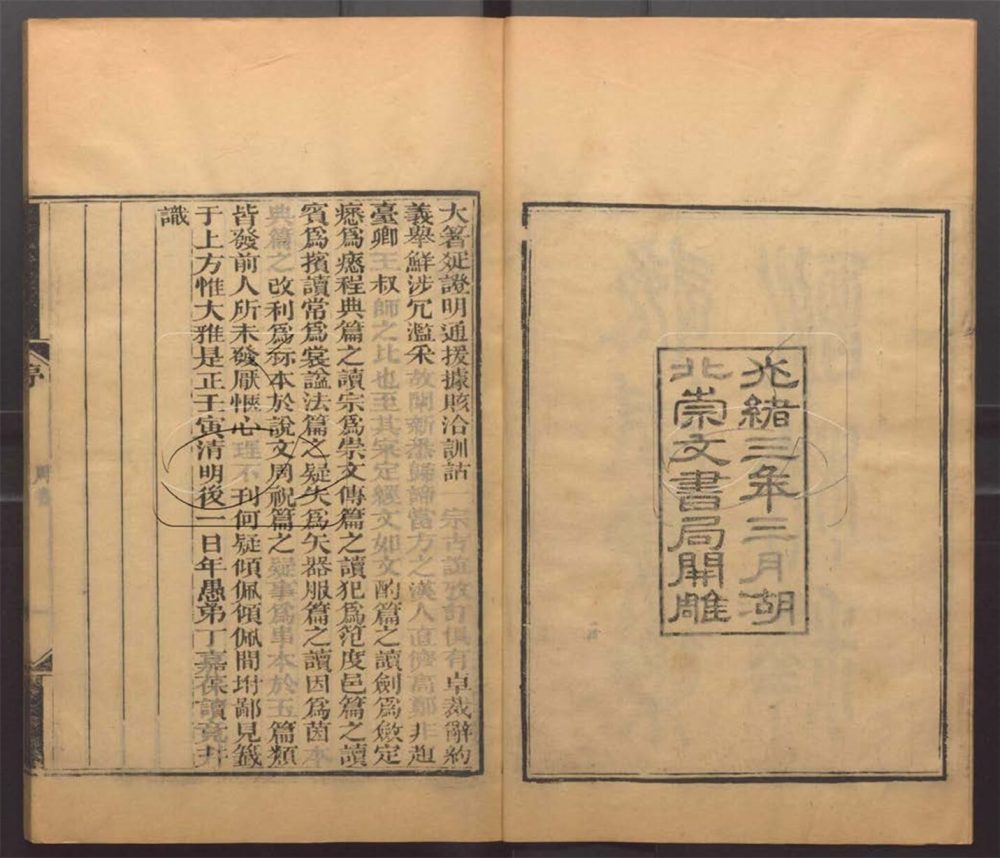 光緒三年三月湖
北崇文書局開雕
大箸延證明通援據賅洽訓詁一宗古誼攷訂俱有卓裁辭約
義舉鮮涉冗濫采故闡新悉歸諦當方之漢人直儕高鄭非趙
臺卿王叔師之比也至其宷定經文如文酌篇之讀劍爲斂定
爲程典篇之讀宗爲崇文傳篇之讀犯爲范度邑篇之讀
賓爲擯讀常爲裳諡法篇之疑失爲矢器服篇之讀因爲茵本
典篇之改利爲本於說文周祝篇之疑事爲本於玉篇類
皆發前人所未發厭愜心理不刊何疑傾佩傾佩間坿鄙見籤
于上方惟大雅是正壬寅清明後一日年愚弟丁嘉葆讀竟幷
識
序